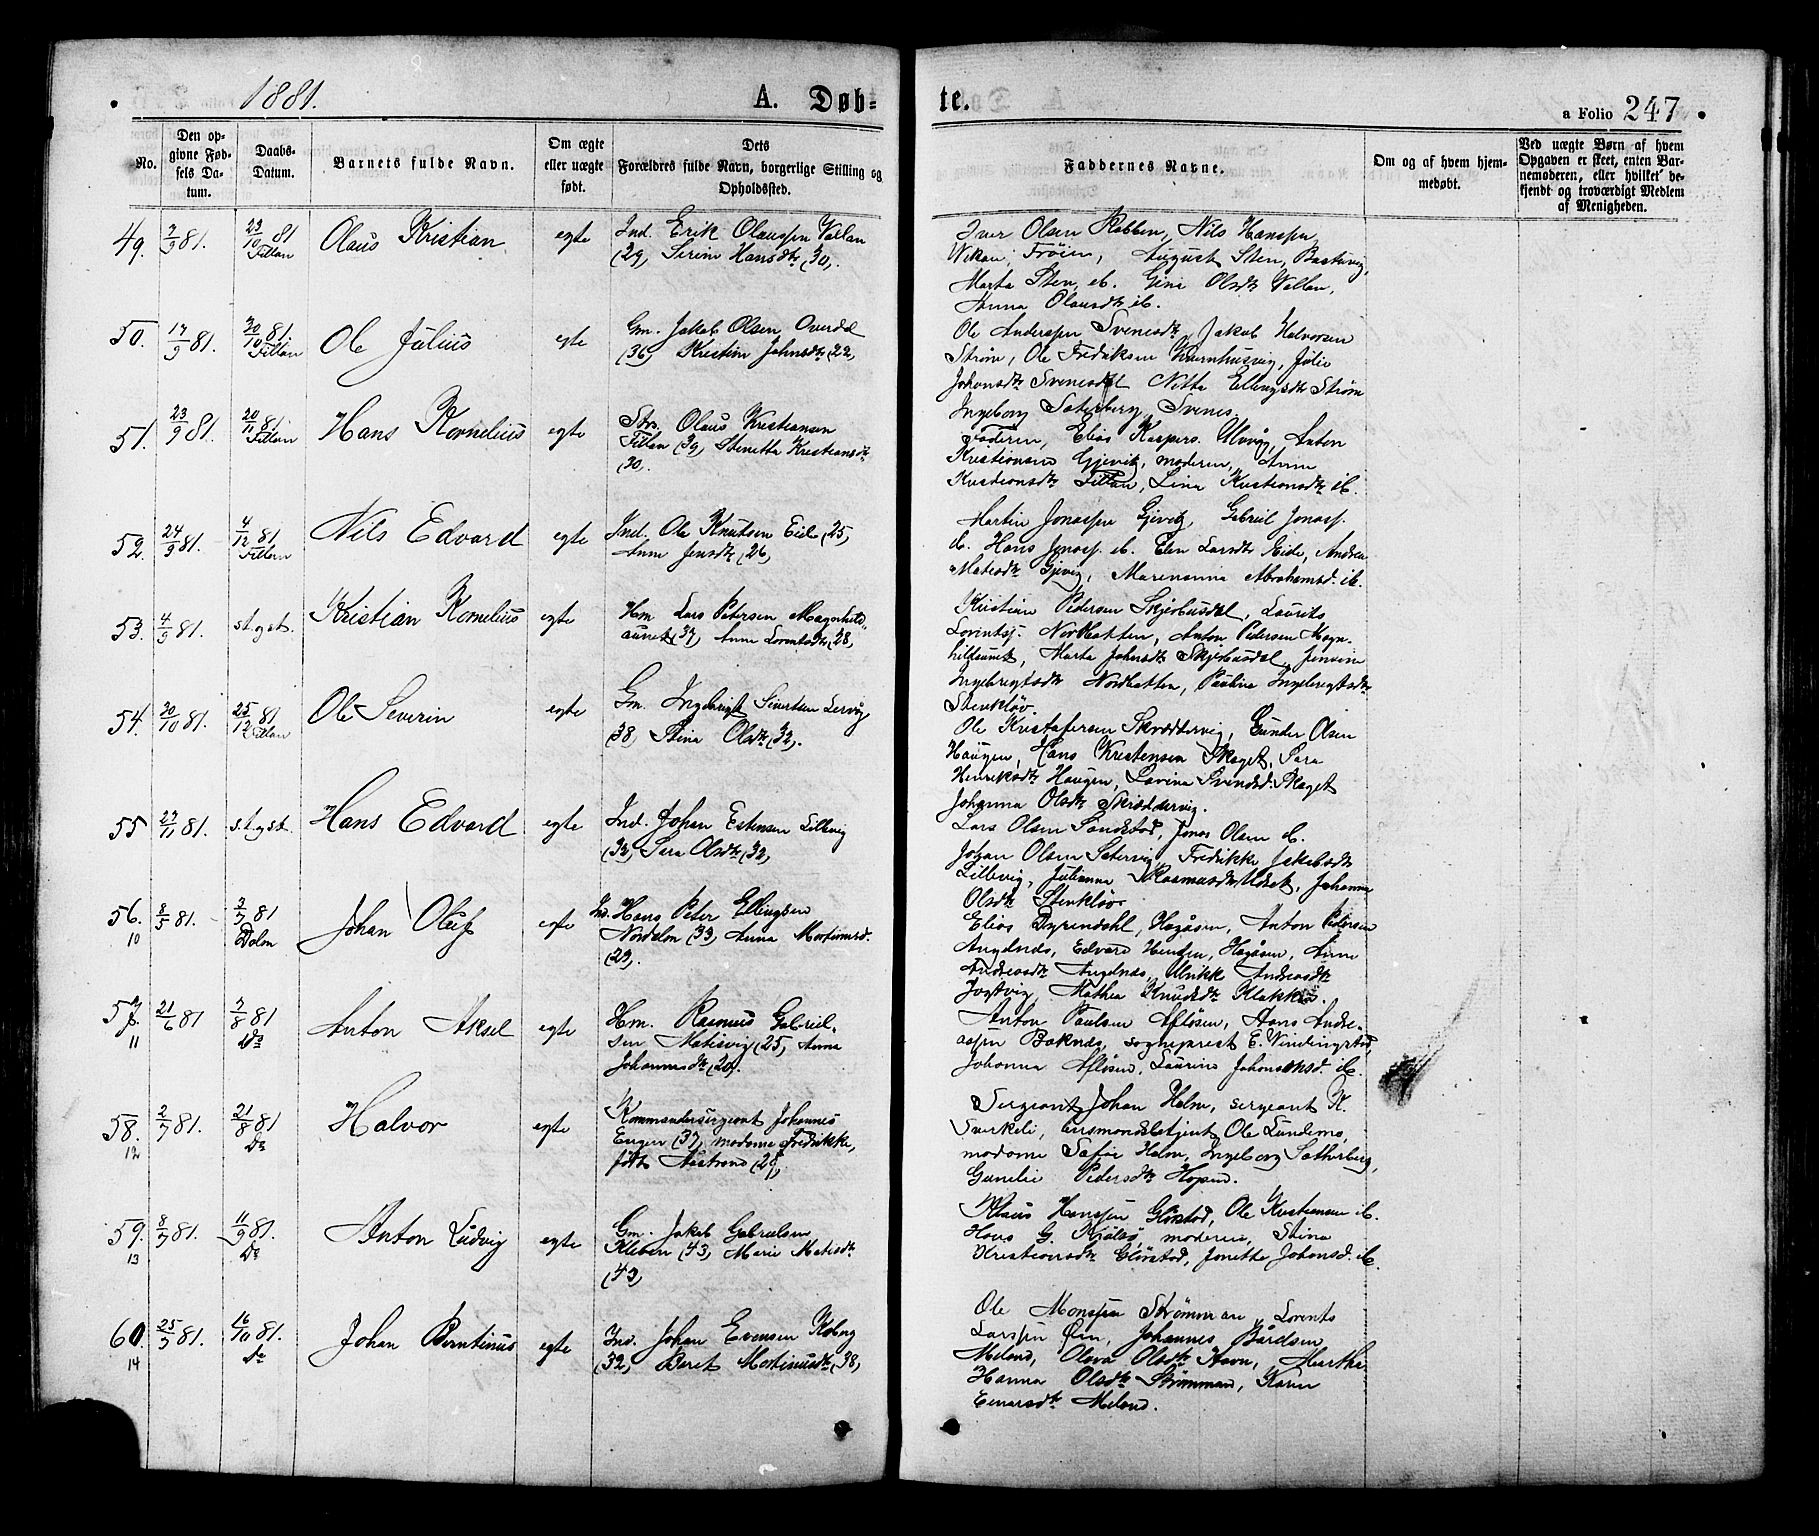 1881.
A. Døb-
te.
a Folio 247
No.
Den op-
givne Fød-
sels Da-
tum.
Daabs-
Datum.
Barnets fulde Navn.
Om ægte
eller uægte
født.
Dets
Forældres fulde Navn, borgerlige Stilling og
Opholdssted.
Faddernes Navne.
Om og af hvem hjem-
medøbt.
Ved uægte Børn af hvem
Opgaven er skeet, enten Bar-
nemoderen, eller hvilket be-
kjendt og troværdigt Medlem
af Menigheden.
49. 7/9 81. 23/10 81 Fillan Olaus Kristian egte
Ind. Erik Olaussen Vallan
(29, Serine Hansdtr (30,
Iver Olsen Rabben, Nils Hanssen
Frøien, August Sten, Bastuvig,
Marta Sten, ib. Gine Olsdtr Vallan,
Anna Olausdtr ib.
50. 17/9 81. 30/10 81. Fillan Ole Julius egte
Gm. Jakob Olsen Overdal
(36, Kristine Johnsdtr (22,
Ole Anderssen Jakob Halvorsen
Strøm, Ole Fredriksen Julie
Johansdtr Nitte Ellingsdtr Strøm
Ingeborg Saterberg, Svenes.
51. 23/9 81. 20/11 81 Fillan Hans Kornelius egte
Olaus Kristiansen
Fillan (39, Stenette Kristiansdtr
30.
Faderen, Elias Kaspers. Ulvøy, Anton
Kristiansen Gjevik, moderen, Anne
Kristiansdtr Fillan, Lina Kristiansdtr ib.
52. 24/9 81. 4/12 81 Fillan Nils Edvard egte
Ind. Ole Knutsen Eide (25,
Anne Jensdtr (26,
Martin Jonassen Gjevik, Gabriel Jonass.
ib. Hans Jonass. ib. Elen Larsdtr Eide, Andrea
Matisdtr Gjevig, Marenanna Abrahamsd. ib.
53. 4/9 81. st. og st. Kristian Kornelius egte
Hm Lars Petersen Magnhild-
aunet (37, Anne Lorentsdtr (28,
Kristian Pedersen Skjærbusdal, Laurits
Lorentsj. Nordbotten, Anton Pedersen Magn-
hildaunet, Marta Johnsdtr Skjærbusdal, Jensine
Ingebrigtsdtr Nordbotten, Paulina Ingebrigtsdtr
Stenkløv.
54. 30/10 81. 25/12 81 Fillan Ole Severin egte
Gm. Ingebrigt Sivertsen Lervåg
(38, Stina Olsdtr (32.
Ole Kristofersen Skræddervig, Gunder Olsen
Haugen, Hans Kristensen Skaget, Sara
Henriksdtr Haugen, Lovina Svendsd. Skaget
Johanna Olsdtr Skræddervig.
55 27/11 81. st. og st. Hans Edvard egte
Ind. Johan Estensen Lillevig
(32, Sara Olsdtr (32,
Lars Olsen Sandstad, Jonas Olsen ib.
Johan Olsen Setervig, Fredrikke Jakobsdtr
Lillevig, Julianna Rasmusdtr Udset, Johanna
Olsdtr Stenkløv
56. 10 8/5 81. 3/7 81 Dolm Johan Oluf egte
Ind. Hans Peter Ellingsen
Nordolm (33, Anna Mortinusd.
(23.
Elias Dyrendahl, Hagåsen, Anton Pedersen
Angelnæs, Edvard Hagåsen, Anne
Andreasdtr Angelnæs, Ulrikke Andreasdtr
Jogtvig, Mathea Knudsdtr Klakken.
57. 11 21/6 81 7/8 81 Do Anton Aksel egte
Hm. Rasmus Gabriel-
sen Matisvig (25, Anna
Johannesdtr (20,
Anton Paulsen Afløsen, Hans Andre-
assen Baknæs, sogneprest E. Vindingstad,
Johanna Afløsen, Laurine Johansensd. ib.
58. 12 2/7 81. 21/8 81 Do Halvor egte
Kommandersergeant Johannes
Enger (37, madame Fredrikke,
født Næstrand (28,
Sergeant Johan Holm, sergeant K.
Sverkeli, lensmandsbetjent Ole Lundemo,
madame Sofie Holm, Ingeborg Sætherberg,
Gunelie Pedersdtr Hopsen.
59. 13 8/7 81. 11/9 81. Do Anton Ludvig egte
Gm. Jakob Gabrielsen
Kleben (43, Marie Matisdtr
(43,
Klaus Hanssen Glørstad, Ole Kristiansen ib.
Hans G. Kjølsø, moderen, Stina
Kristiansdtr Glørstad, Jonette Johansd. ib.
60. 14 25/7 81. 16/10 81. Do Johan Berntinus egte
Ind. Johan Evensen Kobvg
(32, Beret Mortinusdtr (38,
Ole Monssen Strømman, Lorents
Larssen Øien, Johannes Bårdsen
Meland, Olava Olsdtr Havn, Martha
Hanna Olsdtr Strømman, Karen
Einarsdtr Meland.